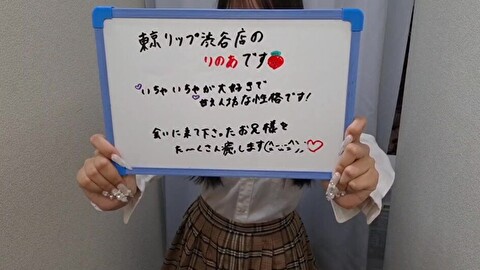 東京リップ渋谷店の
りのあです🍓
いちゃいちゃが大好きで
甘えん坊な性格です！
会いに来て下さったお兄様を
た〜くさん癒します(⁠◡⁠‿⁠◡⁠)♡